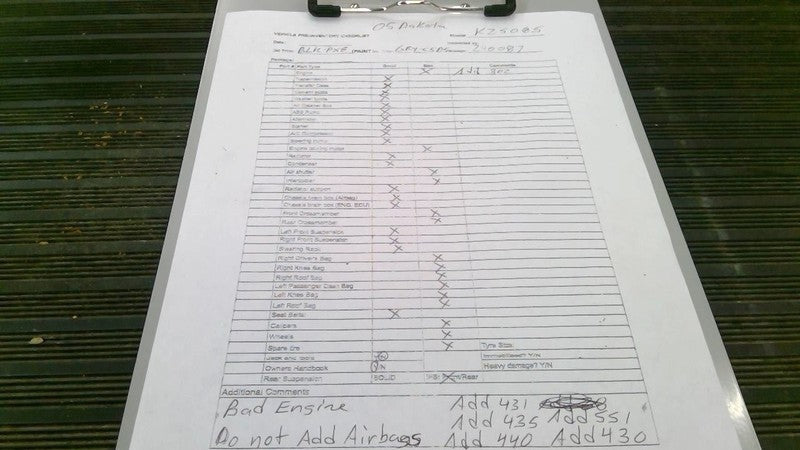 05 Dakota
VEHICLE PREINVENTORY CHECKLIST
Stock# KZ5085
Date:
BLK PXR (PAINT
240087
Part # Part Type Good Bad Comments
Engine X Add 800
Transmission X
Transfer Case X
X
X
X
ABS Pump X
Alternator X
Starter X
A/C Compressor X
Steering Pump X
X
Radiator X
Condenser X
Air shutter X
Intercooler X
Radiator support X
Chassis brain box (Airbag) X
Chassis brain box (ENG, ECU) X
Front Crossmember X
Rear Crossmember X
Left Front Suspension X
Right Front Suspension X
Steering Rack X
Right Drivers Bag X
Right Knee Bag X
Right Roof Bag X
Left Passenger Dash Bag X
Left Knee Bag X
Left Roof Bag X
Seat Belts X
Calipers X
Wheels X
Spare tire X Tyre Size:
Jack and tools Y/N Immobiliser? Y/N
Owners Handbook Y/N Heavy damage? Y/N
Rear Suspension SOLID /Rear
Additional Comments
Bad Engine Add 431
Add 435 Add 551
Do not Add Airbags Add 440 Add 430